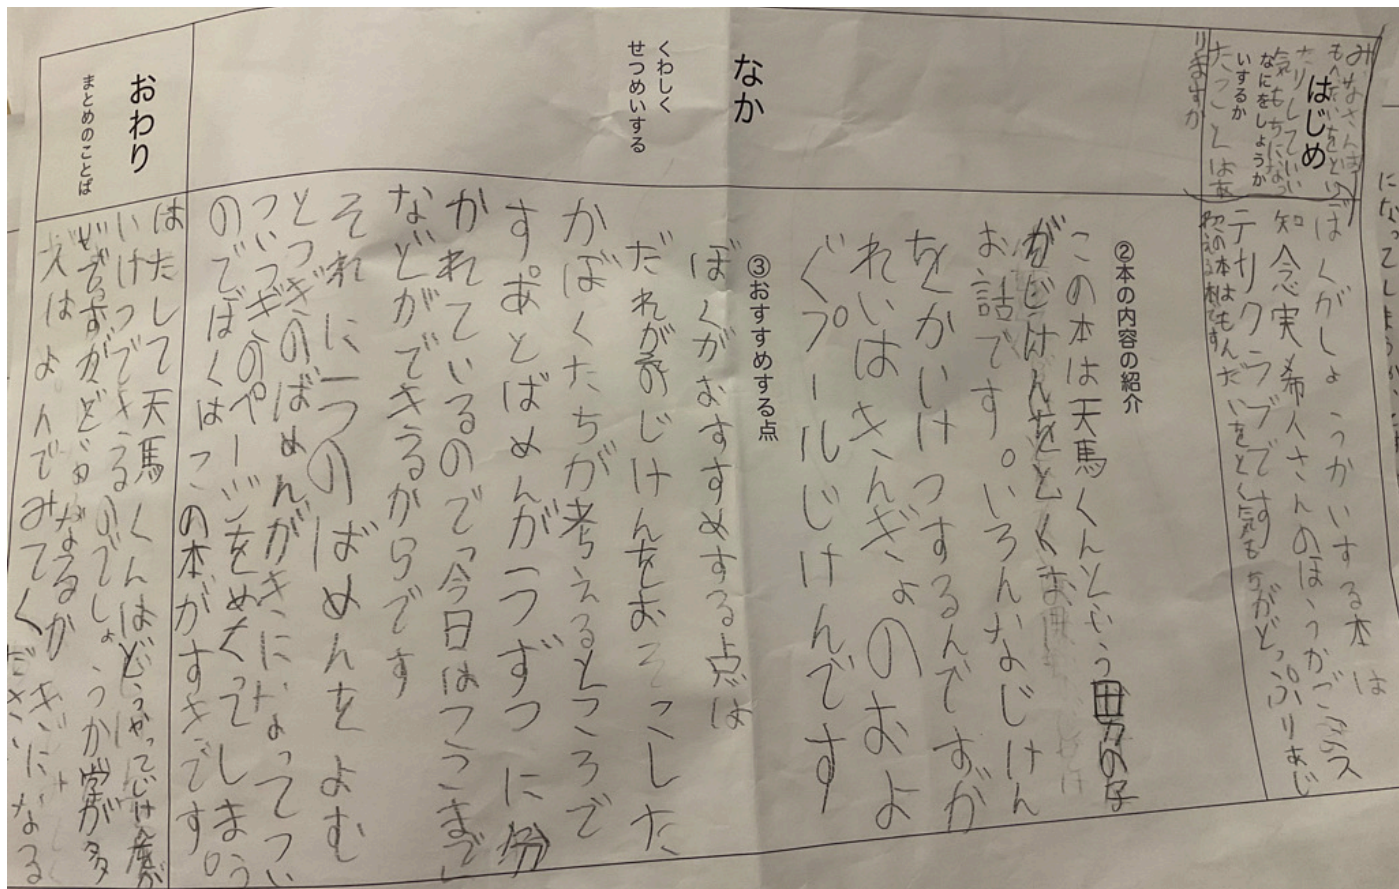 になってしまう
みなさんは
もんだいをといて
たりしていい
気もちになっ
たことはあ
りますか
はじめ
なにをしょうか
いするか
ぼくがしょうかいする本は
知念実希人さんのほうかごミス
テリクラブです
この本はもんだいをとく気もちがどっぷりあじ
わえる本です
なか
くわしく
せつめいする
②本の内容の紹介
この本は天馬くんという男の子
がじけんをとく
お話です。いろんなじけん
をかいけつするんですが
れいはきんぎょのおよ
ぐプールじけんです
③おすすめする点
ぼくがおすすめする点は
だれがのじけんをおこした
かぼくたちが考えるところで
すあとばめんが一つずつに分
かれているので今日はここまで
などができるからです
それに一つのばめんをよむ
とつぎのばめんがきになってつい
ついつぎのページをめくってしまう
のでぼくはこの本がすきです。
おわり
まとめのことば
はたして天馬くんはどうやってじけんが
いけつできるのでしょうか字が多
いですがどうなるかきになる
人はよんでみてください